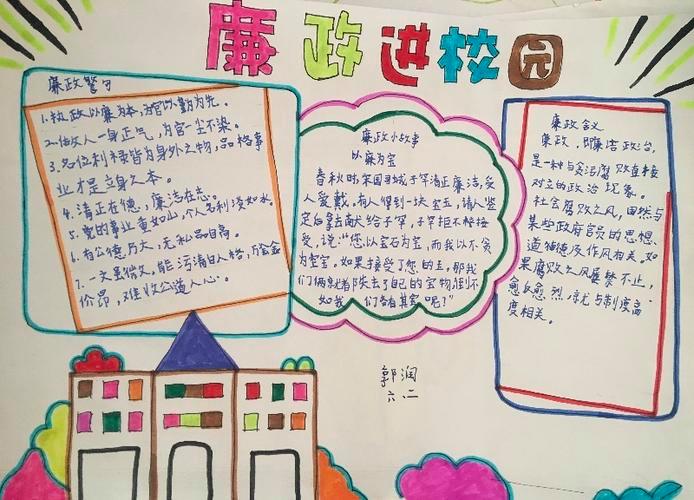 廉政进校园
廉政警句
1.执政以廉为本,为官以勤为先。
2.做人一身正气,为官一尘不染。
3.名位利禄皆为身外之物,品格事
业才是立身之本。
4.清正在德,廉洁在志。
5.党的事业重如山,个人名利淡如水。
6.有公德乃大,无私品自高。
7.一文虽微,能污清白人格,
价昂,难收公道人心。
廉政小故事
以廉为宝
春秋时,宋国司城子罕清正廉洁,受
人爱戴。有人得到一块宝玉,请人鉴
定后拿去献给子罕,子罕拒不接
受,说:“您以宝石为宝,而我以不贪
为宝。如果接受了您的玉,那我
们俩就都失去了自己的宝物。倒不
如我们各有其宝呢?”
廉政含义
廉政,即廉洁政治,
是一种与贪污腐败直接
对立的政治现象。
社会腐败之风,固然与
某些政府官员的思想、
道德及作风相关,如
果腐败之风屡禁不止,
愈反愈烈,就与制度高
度相关。
郭润
六.二